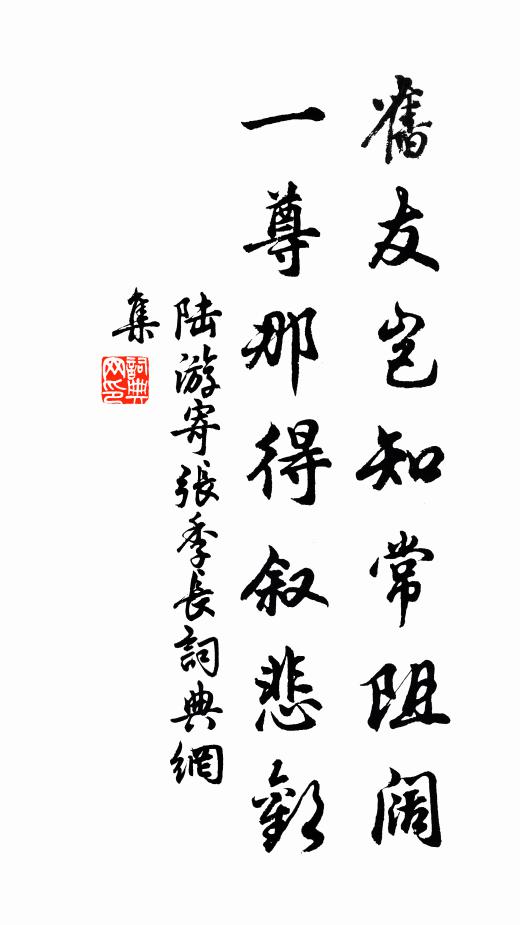 舊友豈知常阻闊
一尊那得叙悲歡
陸游寄張季長詞典網
集
詞典網印